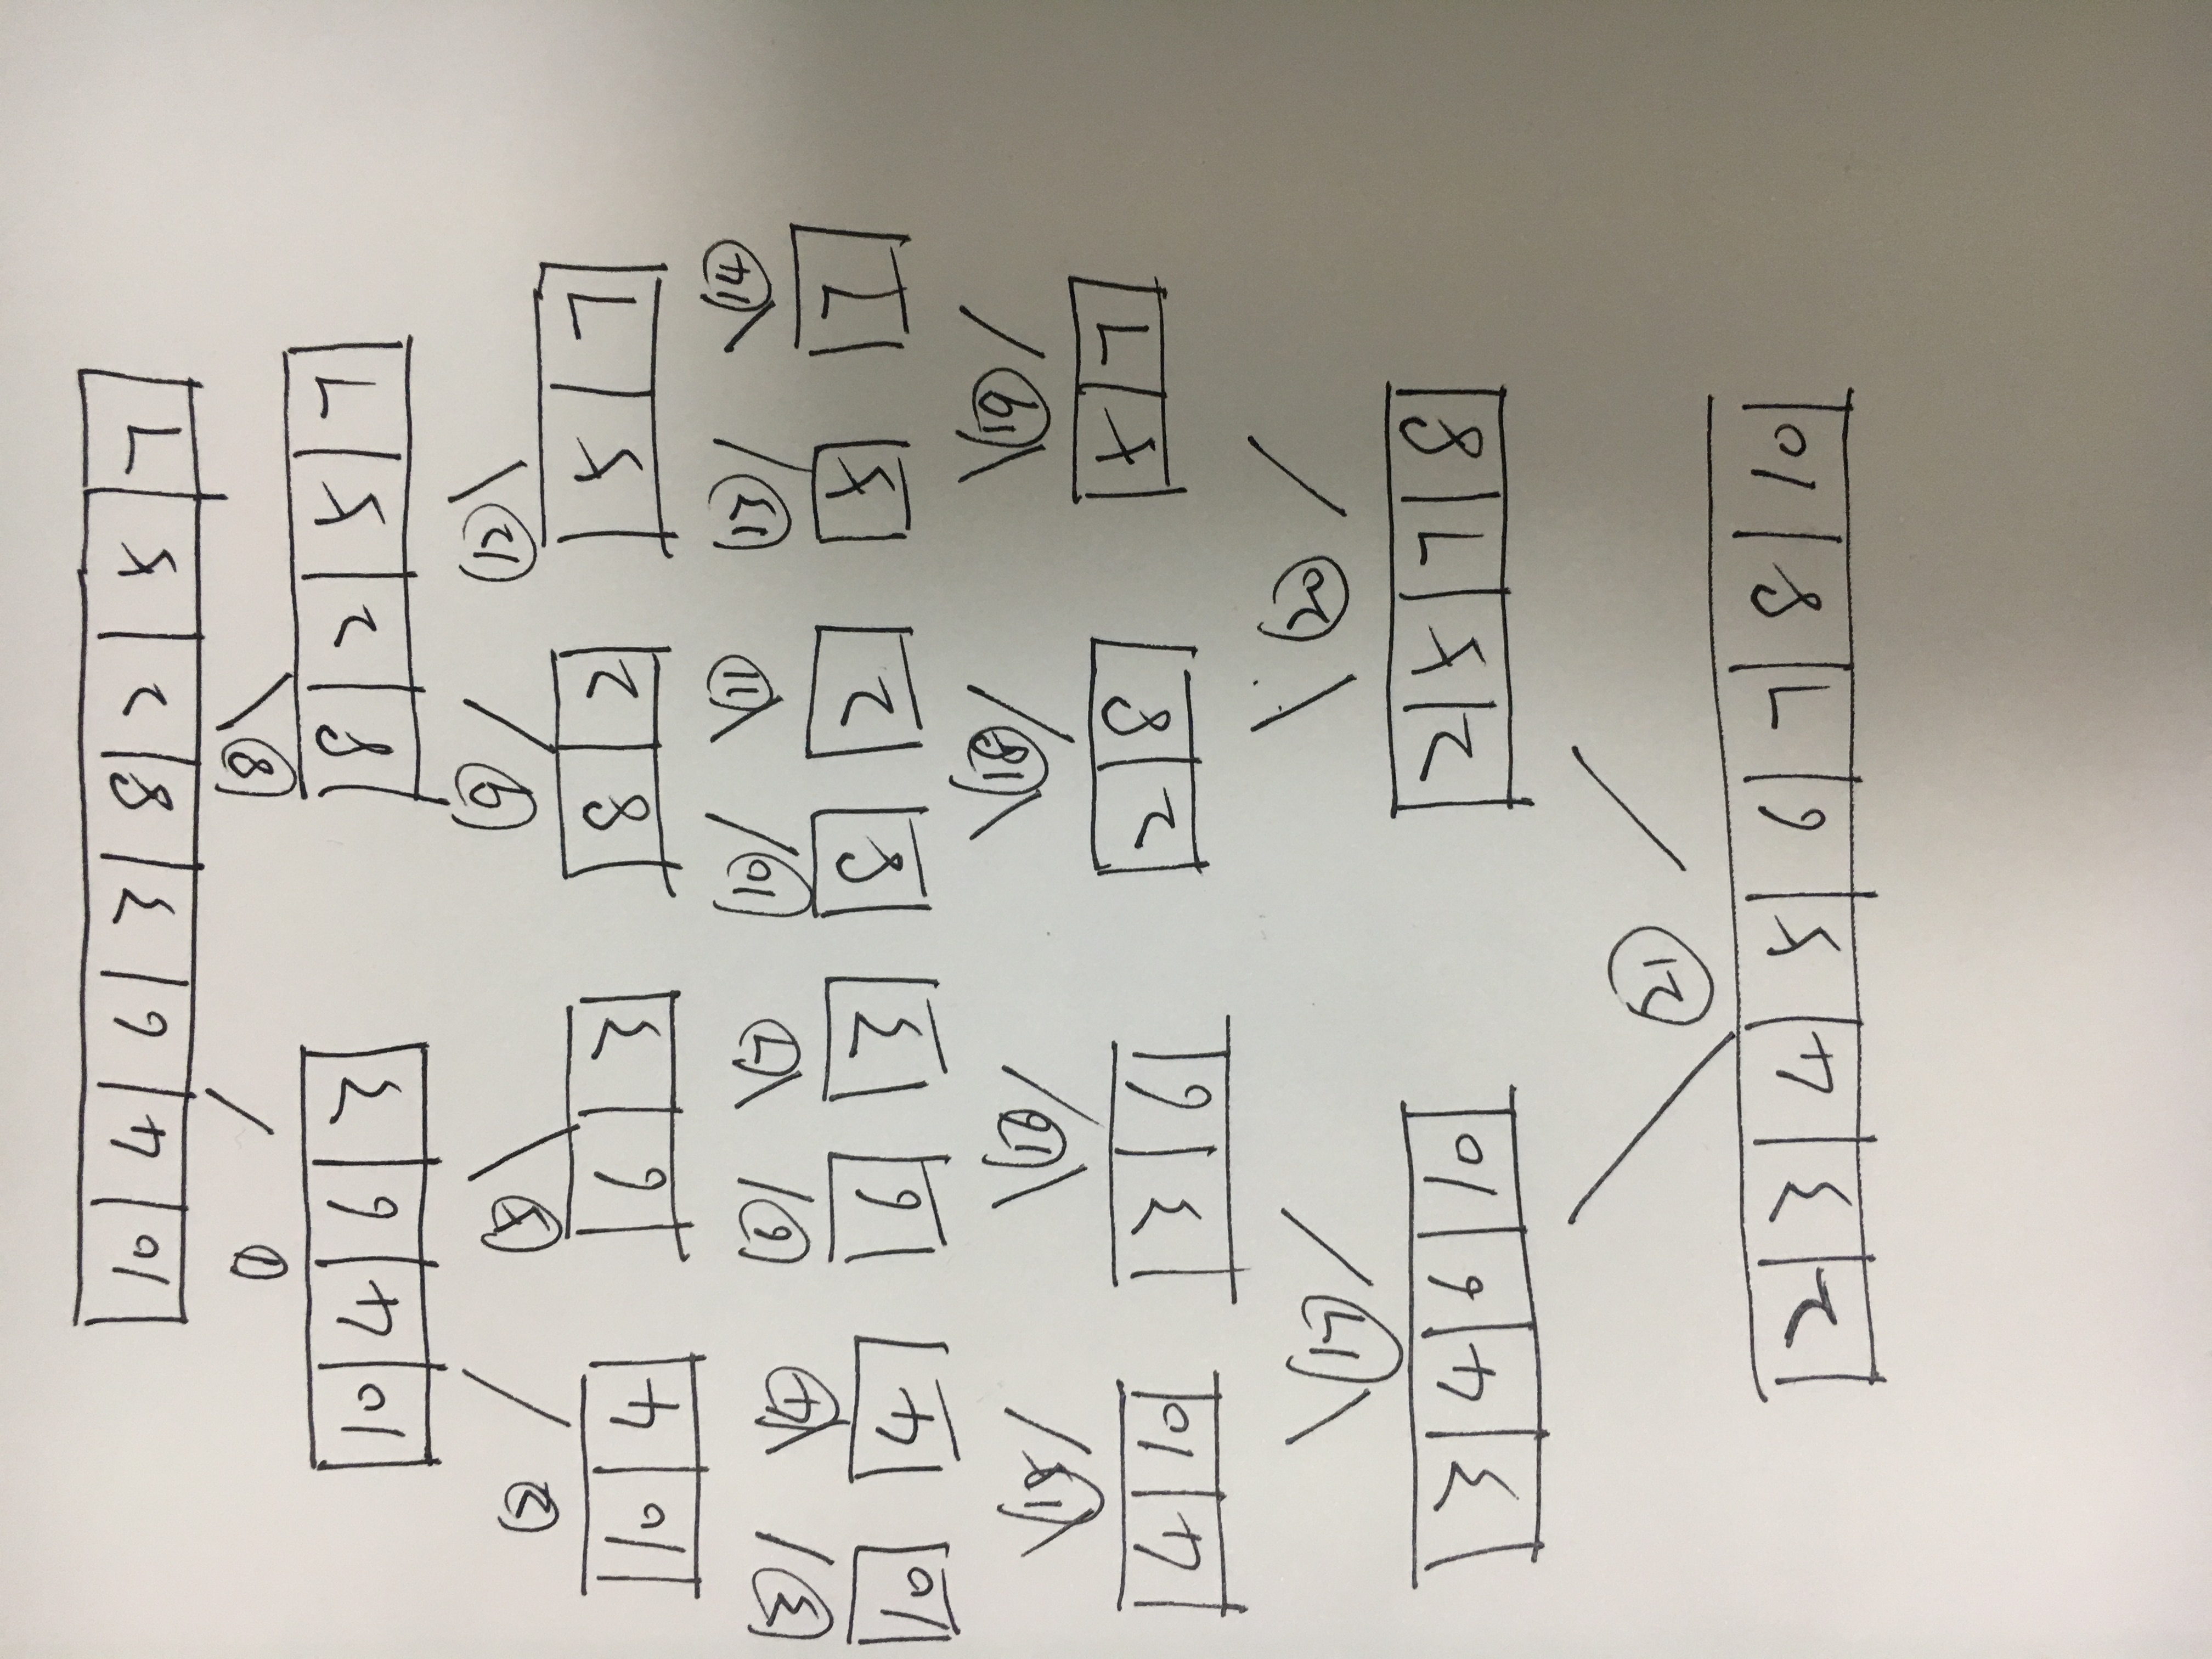 10 4 6 3 8 2 5 7
① ⑧
10 4 6 3 8 2 5 7
② ⑤ ⑨ ⑫
10 4 6 3 8 2 5 7
③ ④ ⑥ ⑦ ⑩ ⑪ ⑬ ⑭
10 4 6 3 8 2 5 7
⑮ ⑯ ⑱ ⑲
4 10 3 6 2 8 5 7
⑰ ⑳
3 4 6 10 2 5 7 8
㉑
2 3 4 5 6 7 8 10